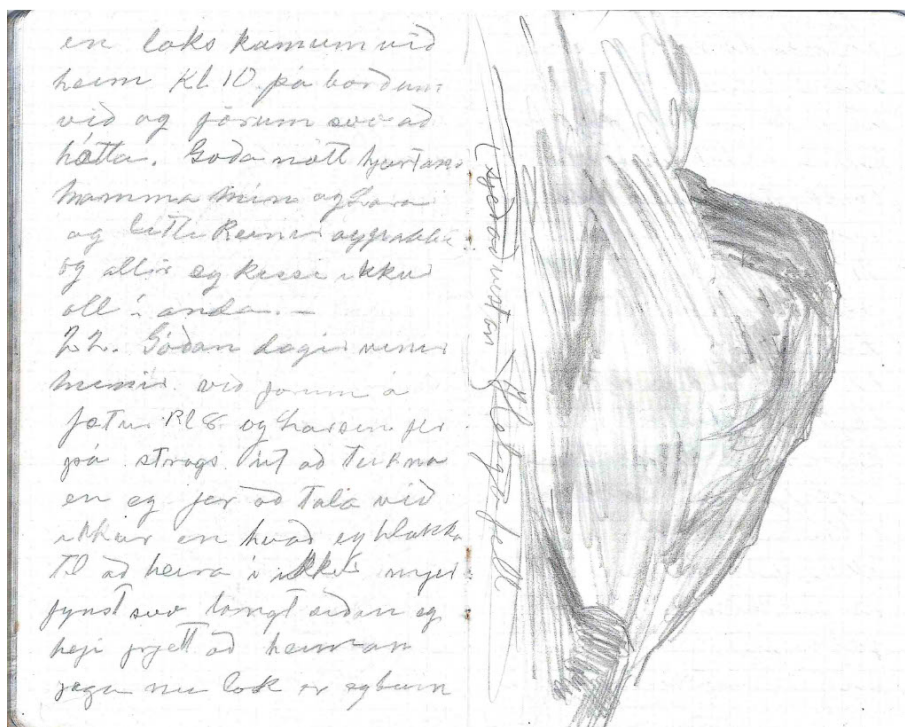 en loks kamum við
heim Kl 10 þá borðum
við og förum svo að
hátta. Goda nótt hjartans
mamma mín og Lára
og litli Reinir og
og allir eg kissi ikkur
öll í anda. —
22. Góðan dagin vinir
mínir við förum á
fætur Kl 8. og Larsen fer
þá strags út að teikna
en eg fer að tala við
ikkur en hvað eg hlakka
til að heira i ikkur mjer
fynst svo langt siðan eg
hefi frjett að heiman
jæga nu lok er eg buin
Helgafell